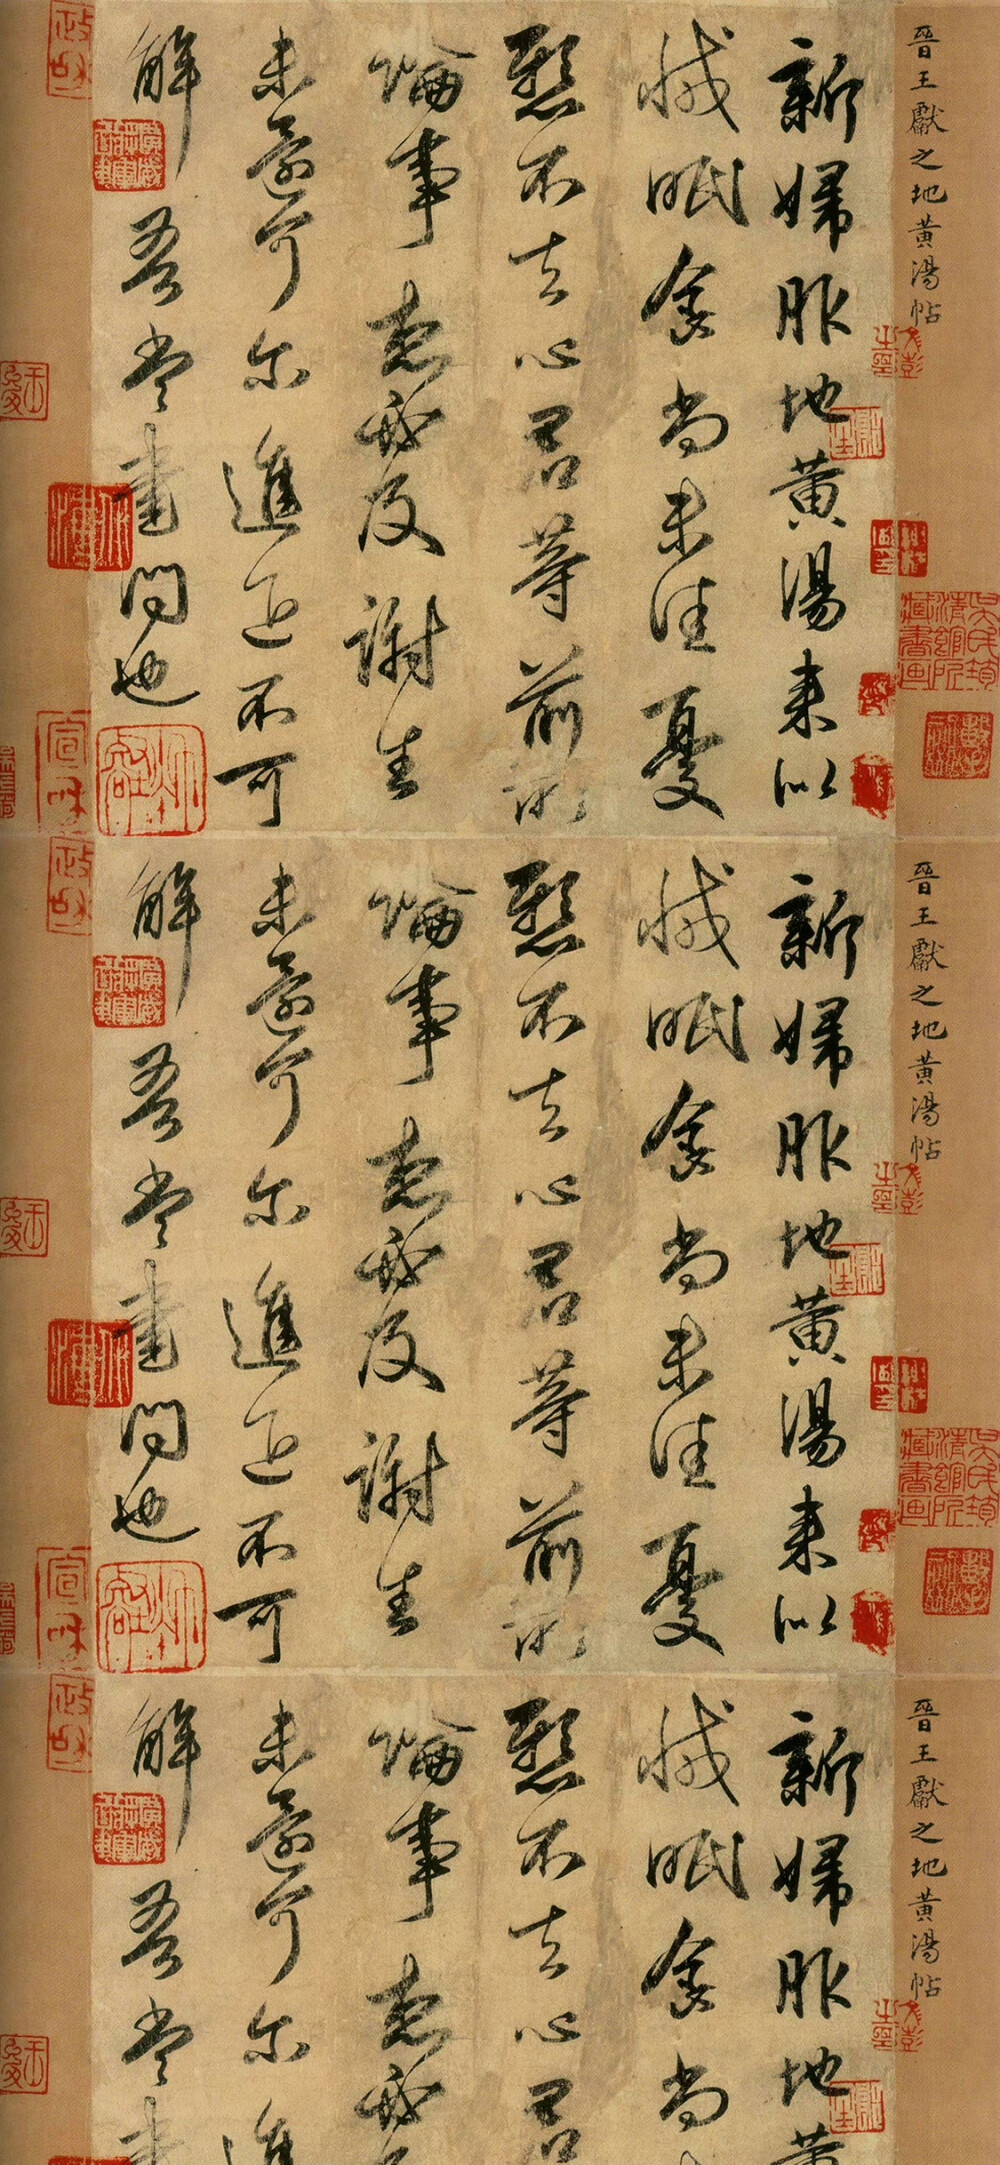 晉王獻之地黃湯帖
新婦服地黃湯來似
減眠食尚未佳憂
懸不去心君等前所
論事想必及謝生
未還可尔進退不可
解吾當書問也
晉王獻之地黃湯帖
新婦服地黃湯來似
減眠食尚未佳憂
懸不去心君等前所
論事想必及謝生
未還可尔進退不可
解吾當書問也
晉王獻之地黃湯帖
新婦服地黃
減眠食尚
懸不去心君
論事想必
未還可尔進
解吾當書